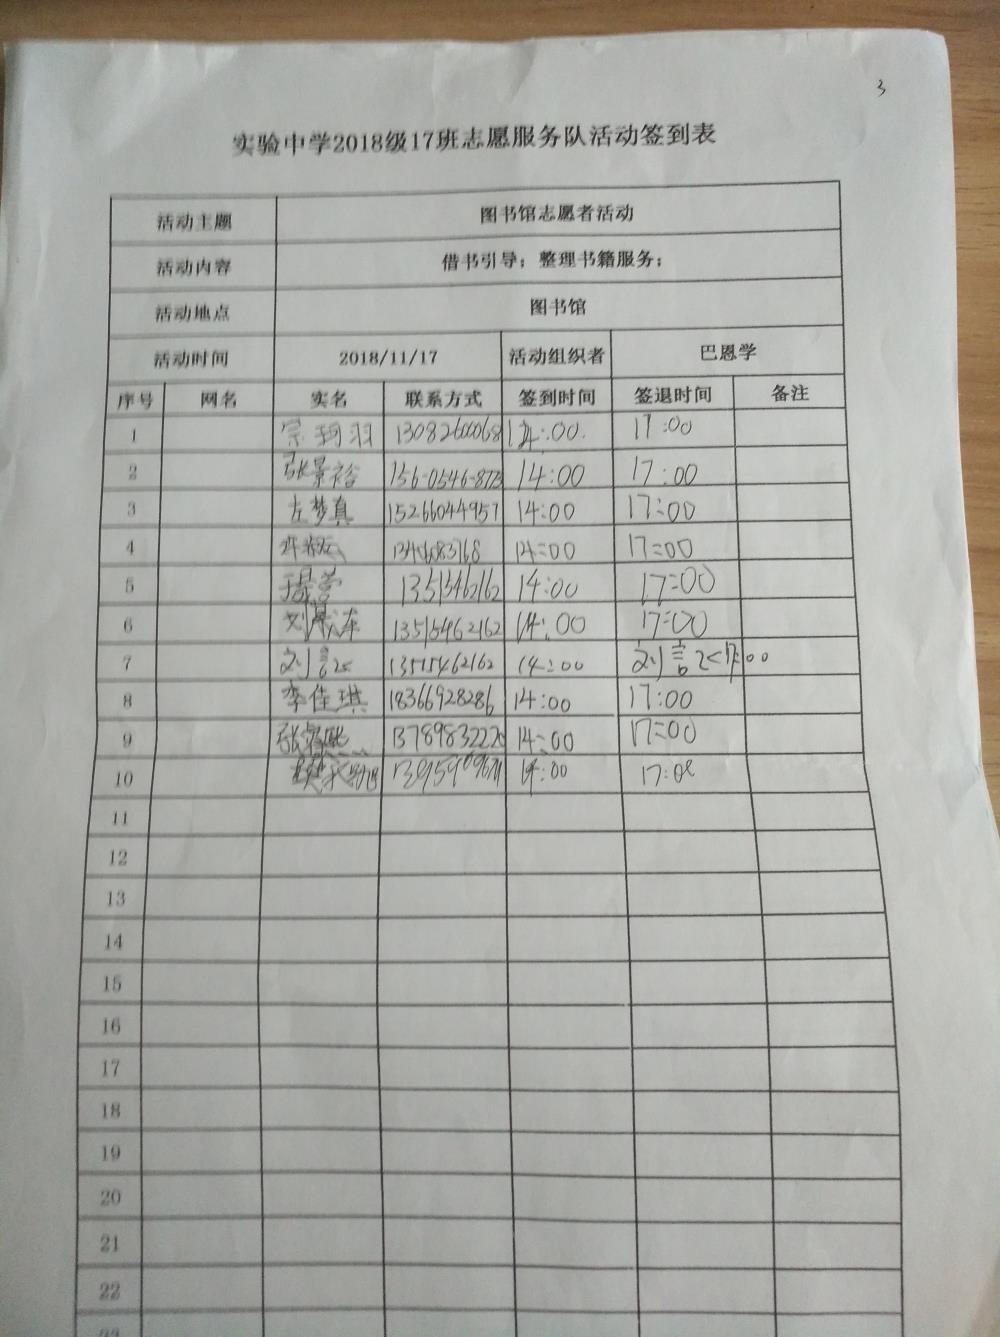 3
实验中学2018级17班志愿服务队活动签到表
活动主题 图书馆志愿者活动
活动内容 借书引导；整理书籍服务；
活动地点 图书馆
活动时间 2018/11/17 活动组织者 巴恩学
序号 网名 实名 联系方式 签到时间 签退时间 备注
1 宗珂羽 14:00. 17:00
2 张景裕 156-0546-873 14:00 17:00
3 左梦真 15266044957 14:00 17:00
4 14:00 17:00
5 13515462162 14:00 17:00
6 13515462162 14:00 17:00
7 刘言 13515462162 14:00 刘言 17:00
8 李佳琪 18366928286 14:00 17:00
9 张 1378983222 14:00 17:00
10 14:00 17:00
11
12
13
14
15
16
17
18
19
20
21
22
23